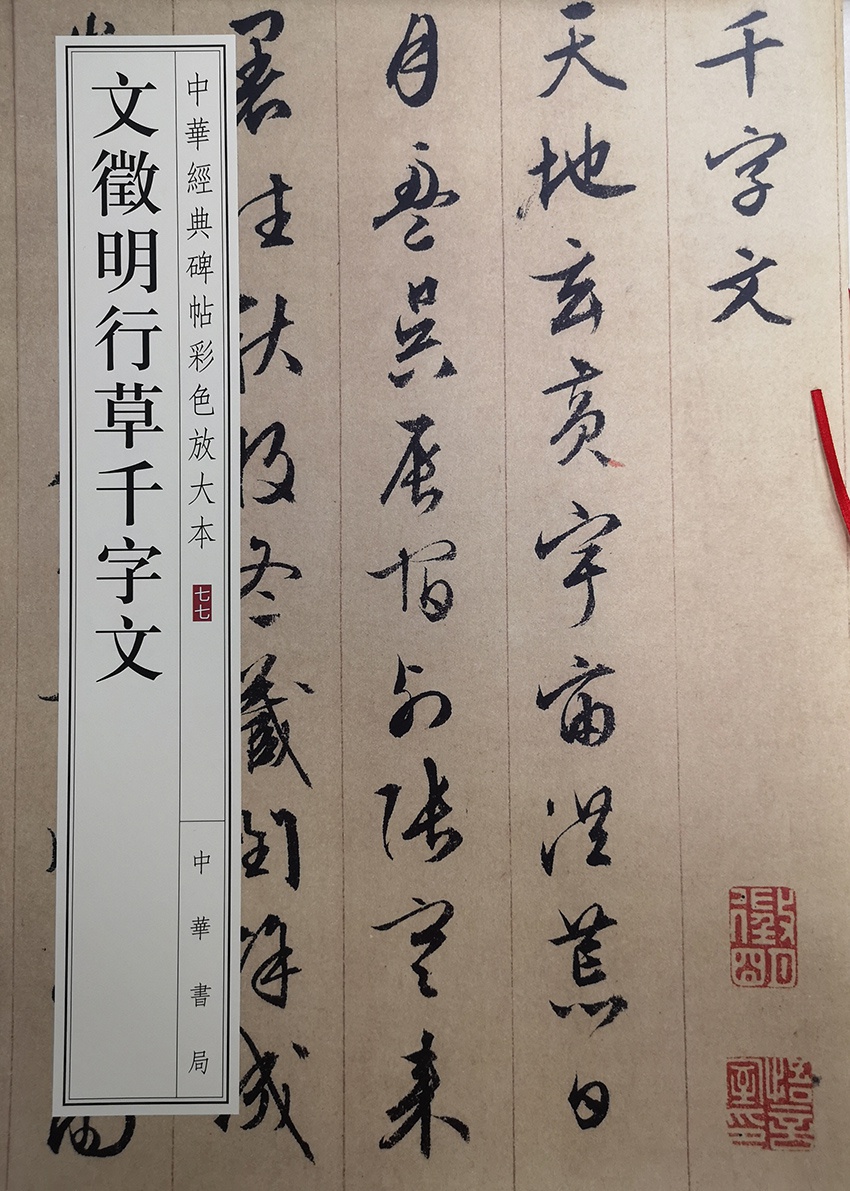 千字文
天地玄黃宇宙洪荒日
月盈昃辰宿列張寒來
暑往秋收冬藏閏餘成
徵明
悟言室印
中華經典碑帖彩色放大本
七七
文徵明行草千字文
中華書局